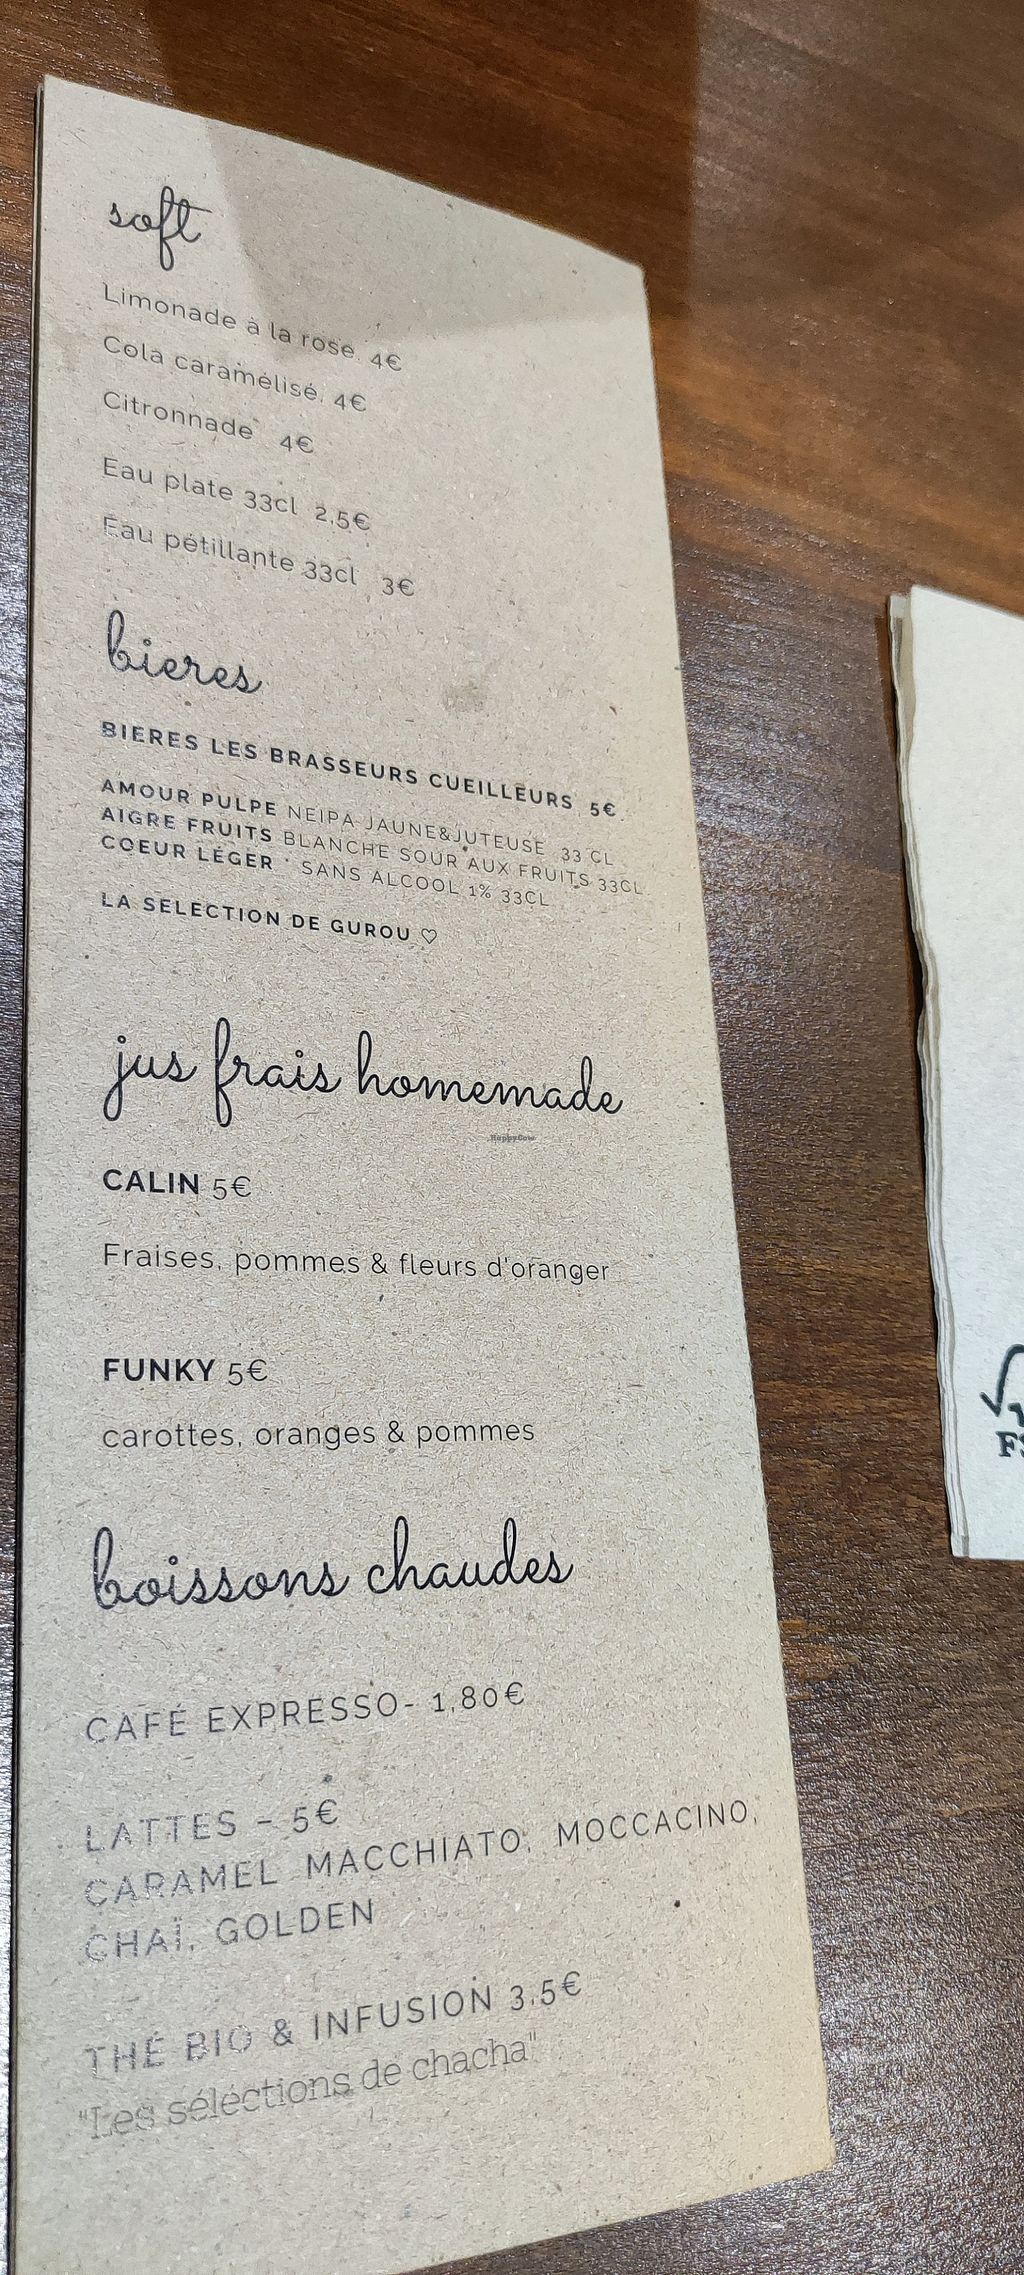 soft
Limonade à la rose. 4€
Cola caramélisé. 4€
Citronnade 4€
Eau plate 33cl 2.5€
Eau pétillante 33cl 3€
bieres
BIERES LES BRASSEURS CUEILLEURS 5€
AMOUR PULPE NEIPA JAUNE&JUTEUSE 33 CL
AIGRE FRUITS BLANCHE SOUR AUX FRUITS 33CL
COEUR LÉGER SANS ALCOOL 1% 33CL
LA SELECTION DE GUROU ♡
jus frais homemade
HappyCow
CALIN 5€
Fraises, pommes & fleurs d'oranger
FUNKY 5€
carottes, oranges & pommes
boissons chaudes
CAFÉ EXPRESSO- 1,80€
LATTES - 5€
CARAMEL MACCHIATO, MOCCACINO,
CHAÏ, GOLDEN
THÉ BIO & INFUSION 3.5€
"Les sélections de chacha"